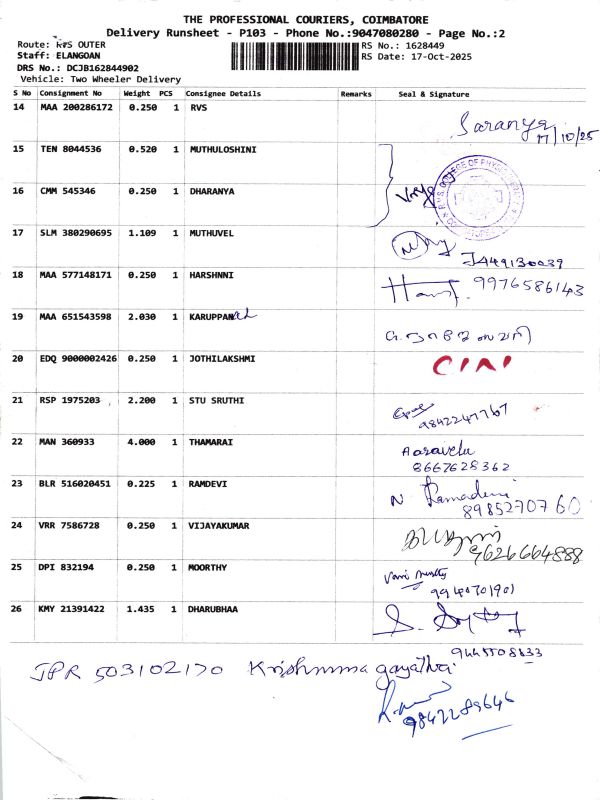 THE PROFESSIONAL COURIERS, COIMBATORE
Delivery Runsheet - P103 - Phone No.:9047080280 - Page No.:2
Route: RVS OUTER
RS No.: 1628449
Staff: ELANGOAN
RS Date: 17-Oct-2025
DRS No.: DCJB162844902
Vehicle: Two Wheeler Delivery
S No Consignment No Weight PCS Consignee Details Remarks Seal & Signature
14 MAA 200286172 0.250 1 RVS
Saranya
17/10/25
15 TEN 8044536 0.520 1 MUTHULOSHINI
16 CMM 545346 0.250 1 DHARANYA
17 SLM 380290695 1.109 1 MUTHUVEL
18 MAA 577148171 0.250 1 HARSHNNI
9976586143
19 MAA 651543598 2.030 1 KARUPPAN
20 EDQ 9000002426 0.250 1 JOTHILAKSHMI
21 RSP 1975203 2.200 1 STU SRUTHI
9842247767
22 MAN 360933 4.000 1 THAMARAI
Aaravelu
8667628362
23 BLR 516020451 0.225 1 RAMDEVI
N Ramadevi
8985270760
24 VRR 7586728 0.250 1 VIJAYAKUMAR
9626664888
25 DPI 832194 0.250 1 MOORTHY
9940701901
26 KMY 21391422 1.435 1 DHARUBHAA
9445508833
JPR 503102170 Krishnnna gayathri
9842289646